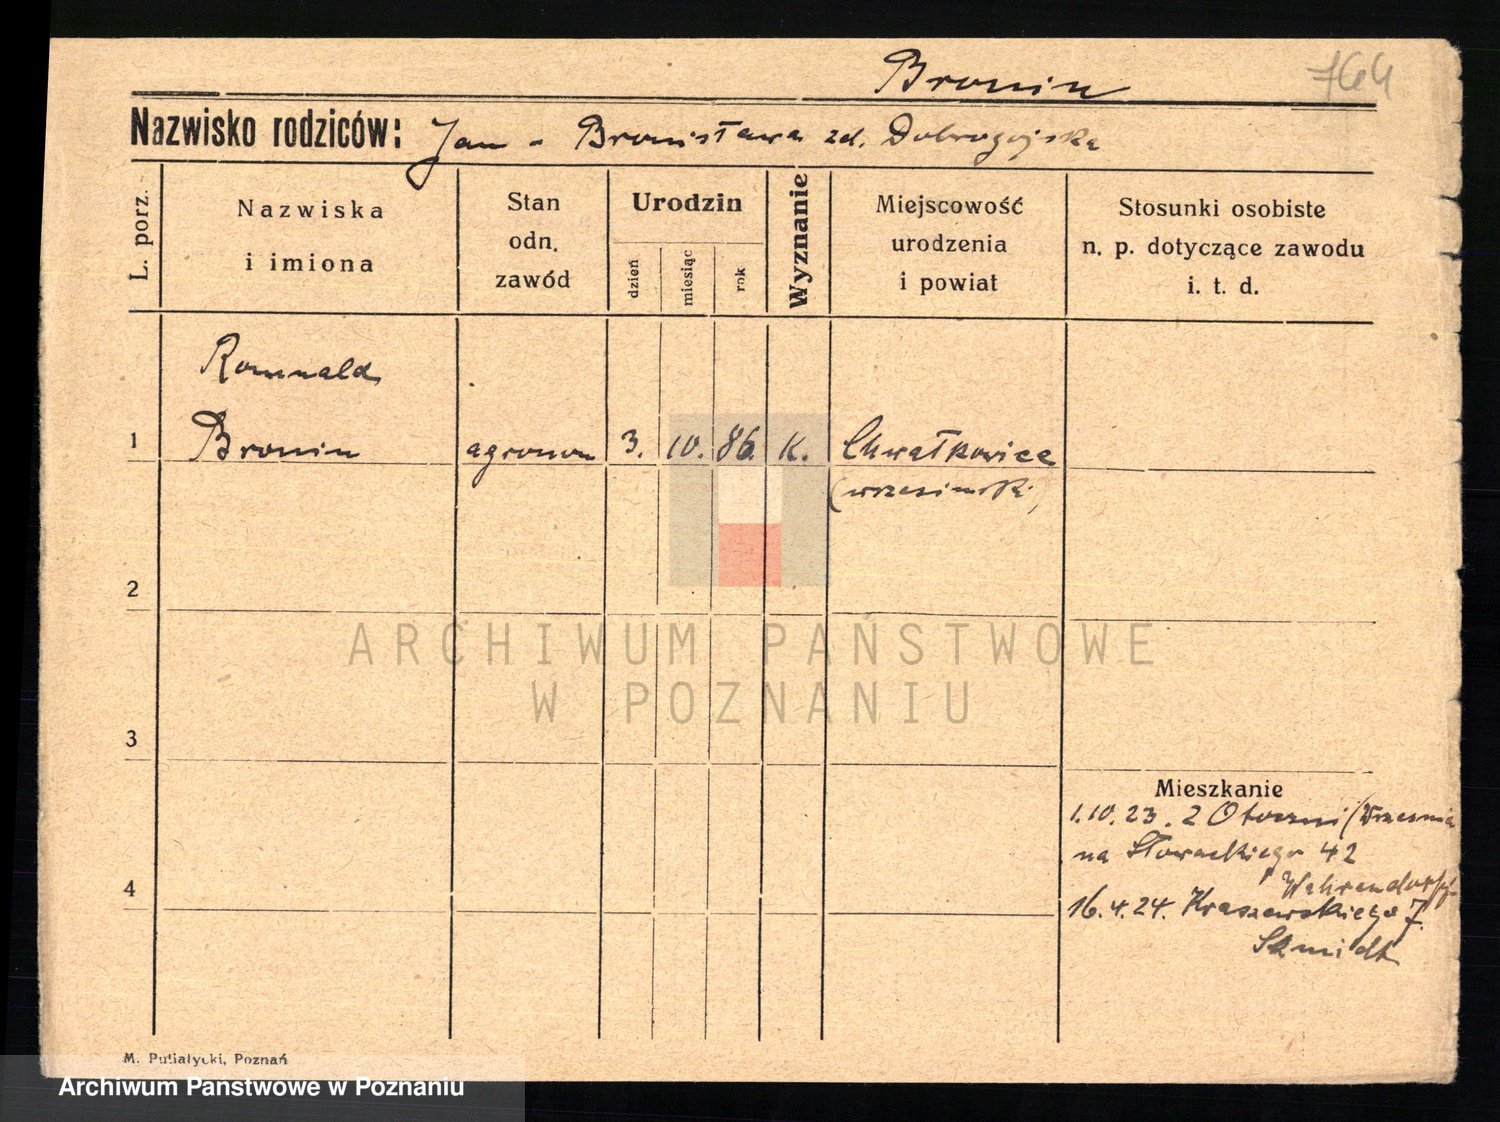 Bronin
764
Nazwisko rodziców: Jan - Bronisława zd. Dobrogojska
L. porz.
Nazwiska
i imiona
Stan
odn.
zawód
Urodzin
dzień
miesiąc
rok
Wyznanie
Miejscowość
urodzenia
i powiat
Stosunki osobiste
n. p. dotyczące zawodu
i. t. d.
Romuald
1 Bronin agronom 3. 10. 86. K. Chwałkowice
(wrzesiński)
2
ARCHIWUM PAŃSTWOWE
W POZNANIU
3
Mieszkanie
1.10.23. z Otoczni (Września
na Słowackiego 42
4
Wehrendorf
16.4.24. Kraszewskiego 7.
Schmidt
M. Putiatycki, Poznań
Archiwum Państwowe w Poznaniu